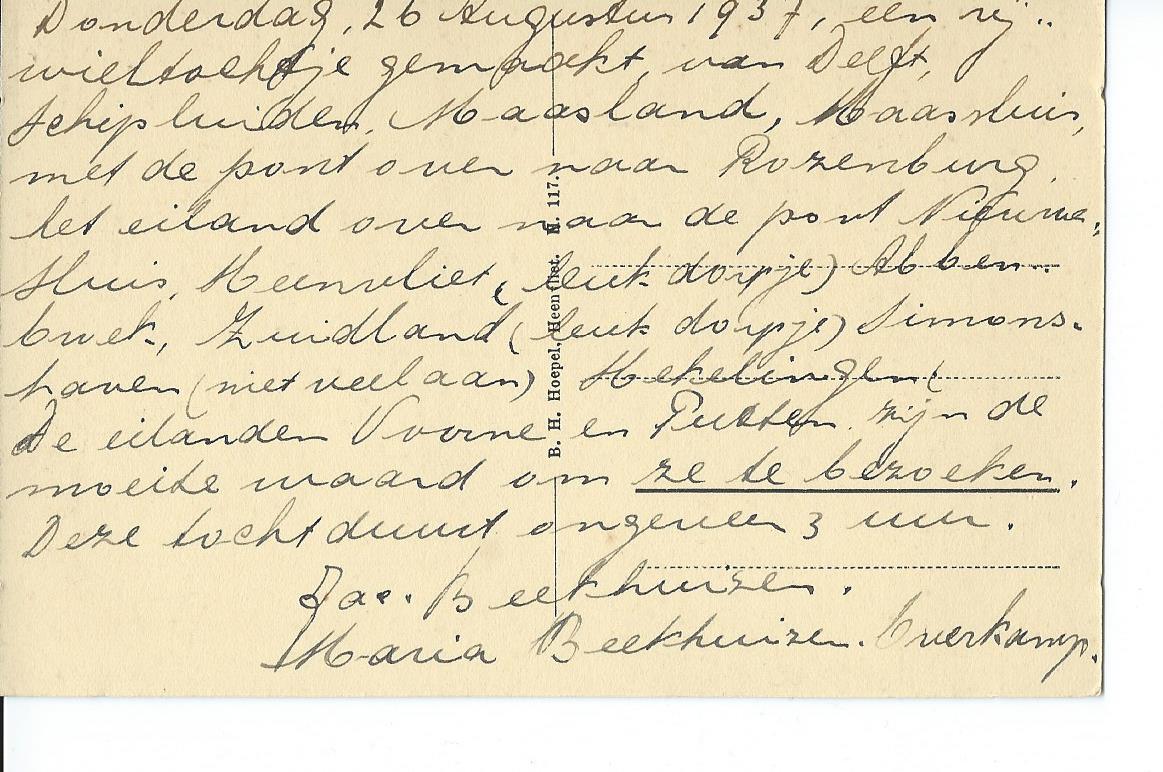 Donderdag, 26 Augustus 1937, een rij..
wieltochtje gemaakt, van Delft,
Schipluiden, Maasland, Maassluis,
met de pont over naar Rozenburg,
het eiland over naar de pont Nieuwe-
sluis, Heenvliet, (leuk dorpje) Abben..
broek, Zuidland (leuk dorpje) Simons-
haven (niet veel aan) Hekelingen (
De eilanden Voorne en Putten zijn de
moeite waard om ze te bezoeken.
Deze tocht duurt ongeveer 3 uur.
Jac. Beekhuizen.
Maria Beekhuizen. Overkamp.
B. H. Hoepel, Heenvliet. N. 117.